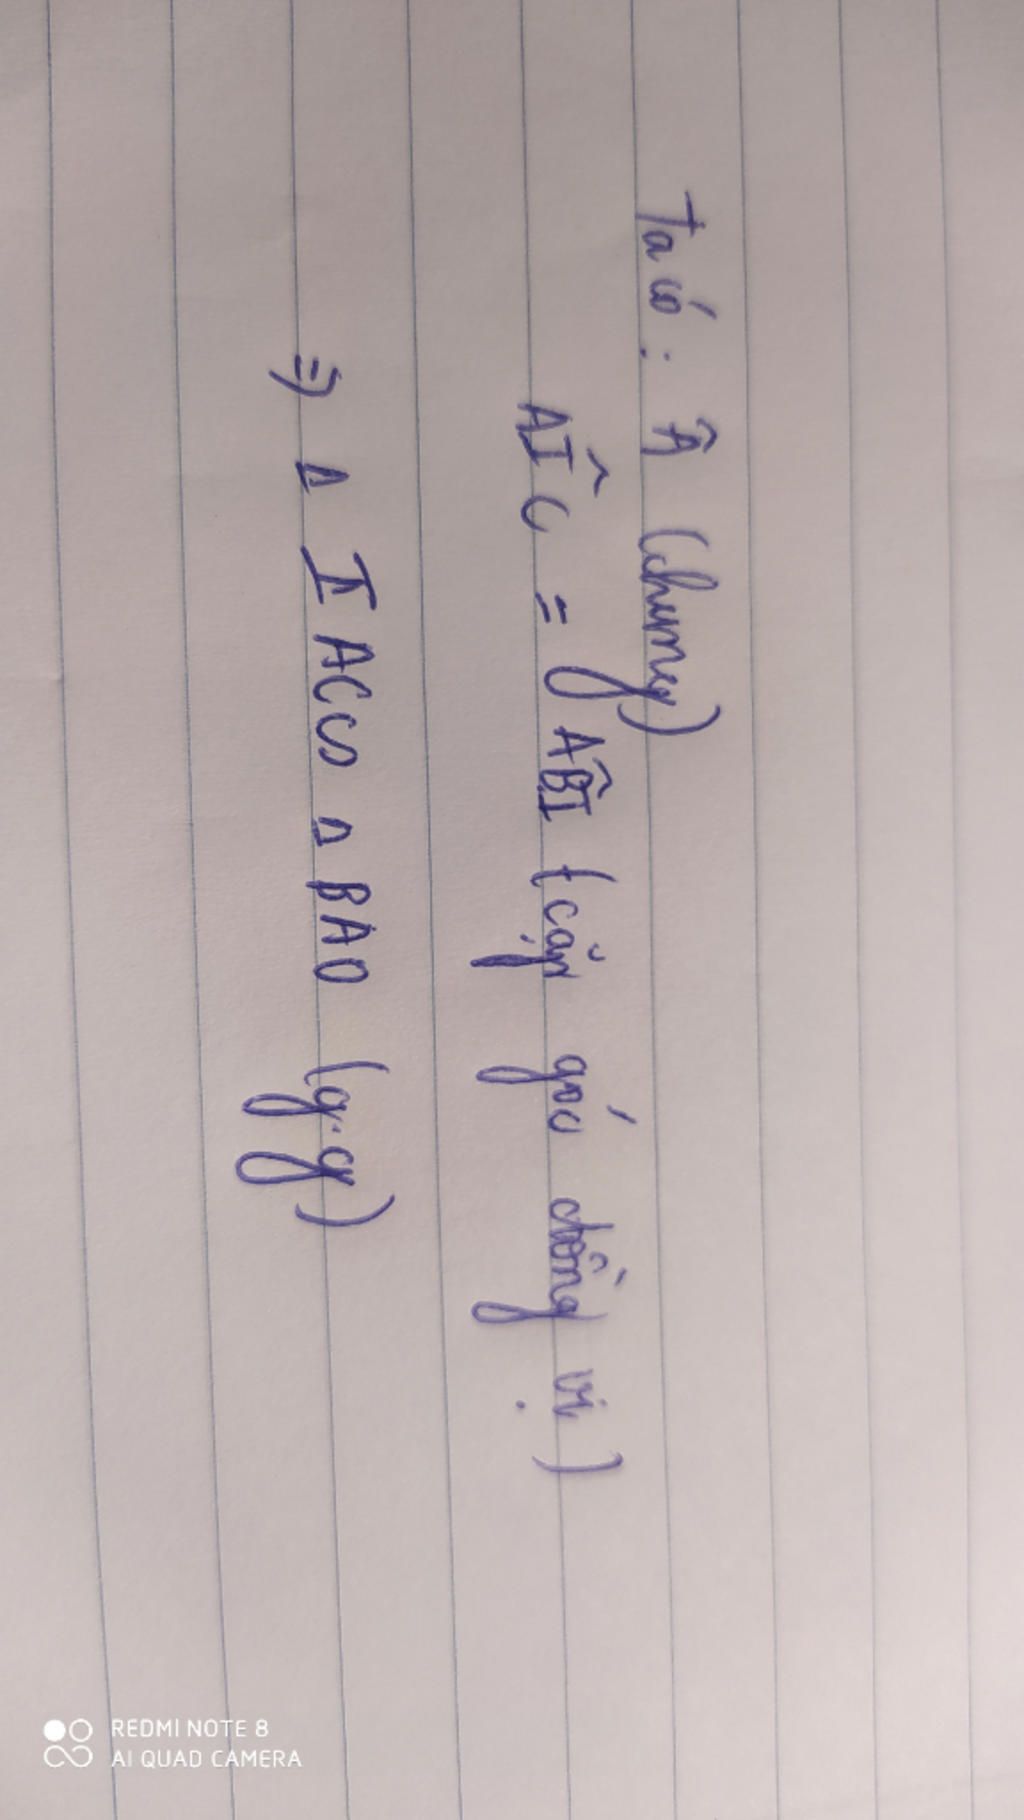 Ta có : Â (chung)
AÎC = AB̂I (cặp góc đồng vị)
=> Δ IAC ∽ Δ BAO (g.g)
REDMI NOTE 8
AI QUAD CAMERA